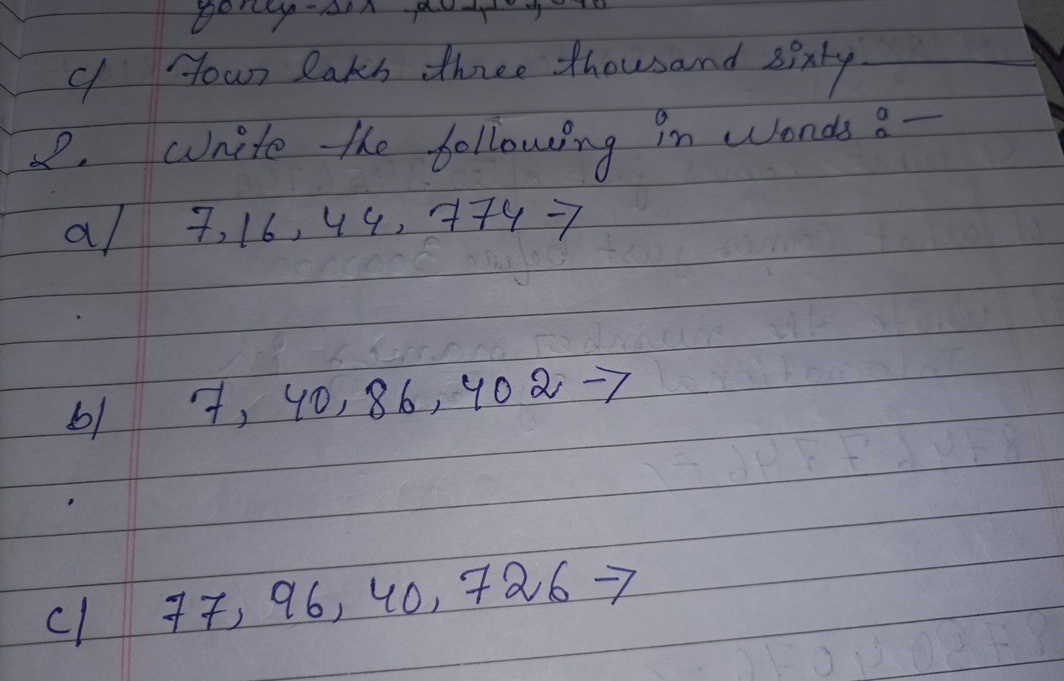 forty-six
c/ Four lakh three thousand sixty
2. Write the following in words :-
a/ 7,16,44,774 →
b/ 7,40,86,402 →
c/ 77,96,40,726 →